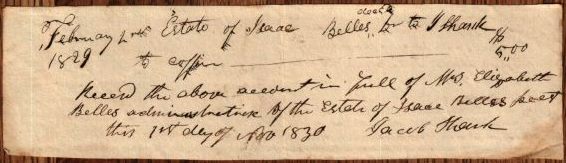 February Estate of Isaac Belles decd Dr to J Shank $
1829 to coffin 5,00
Received the above account in full of Mrs Elizabeth
Belles administratrix of the Estate of Isaac Belles decd
this 1st day of Nov 1830 Jacob Shank